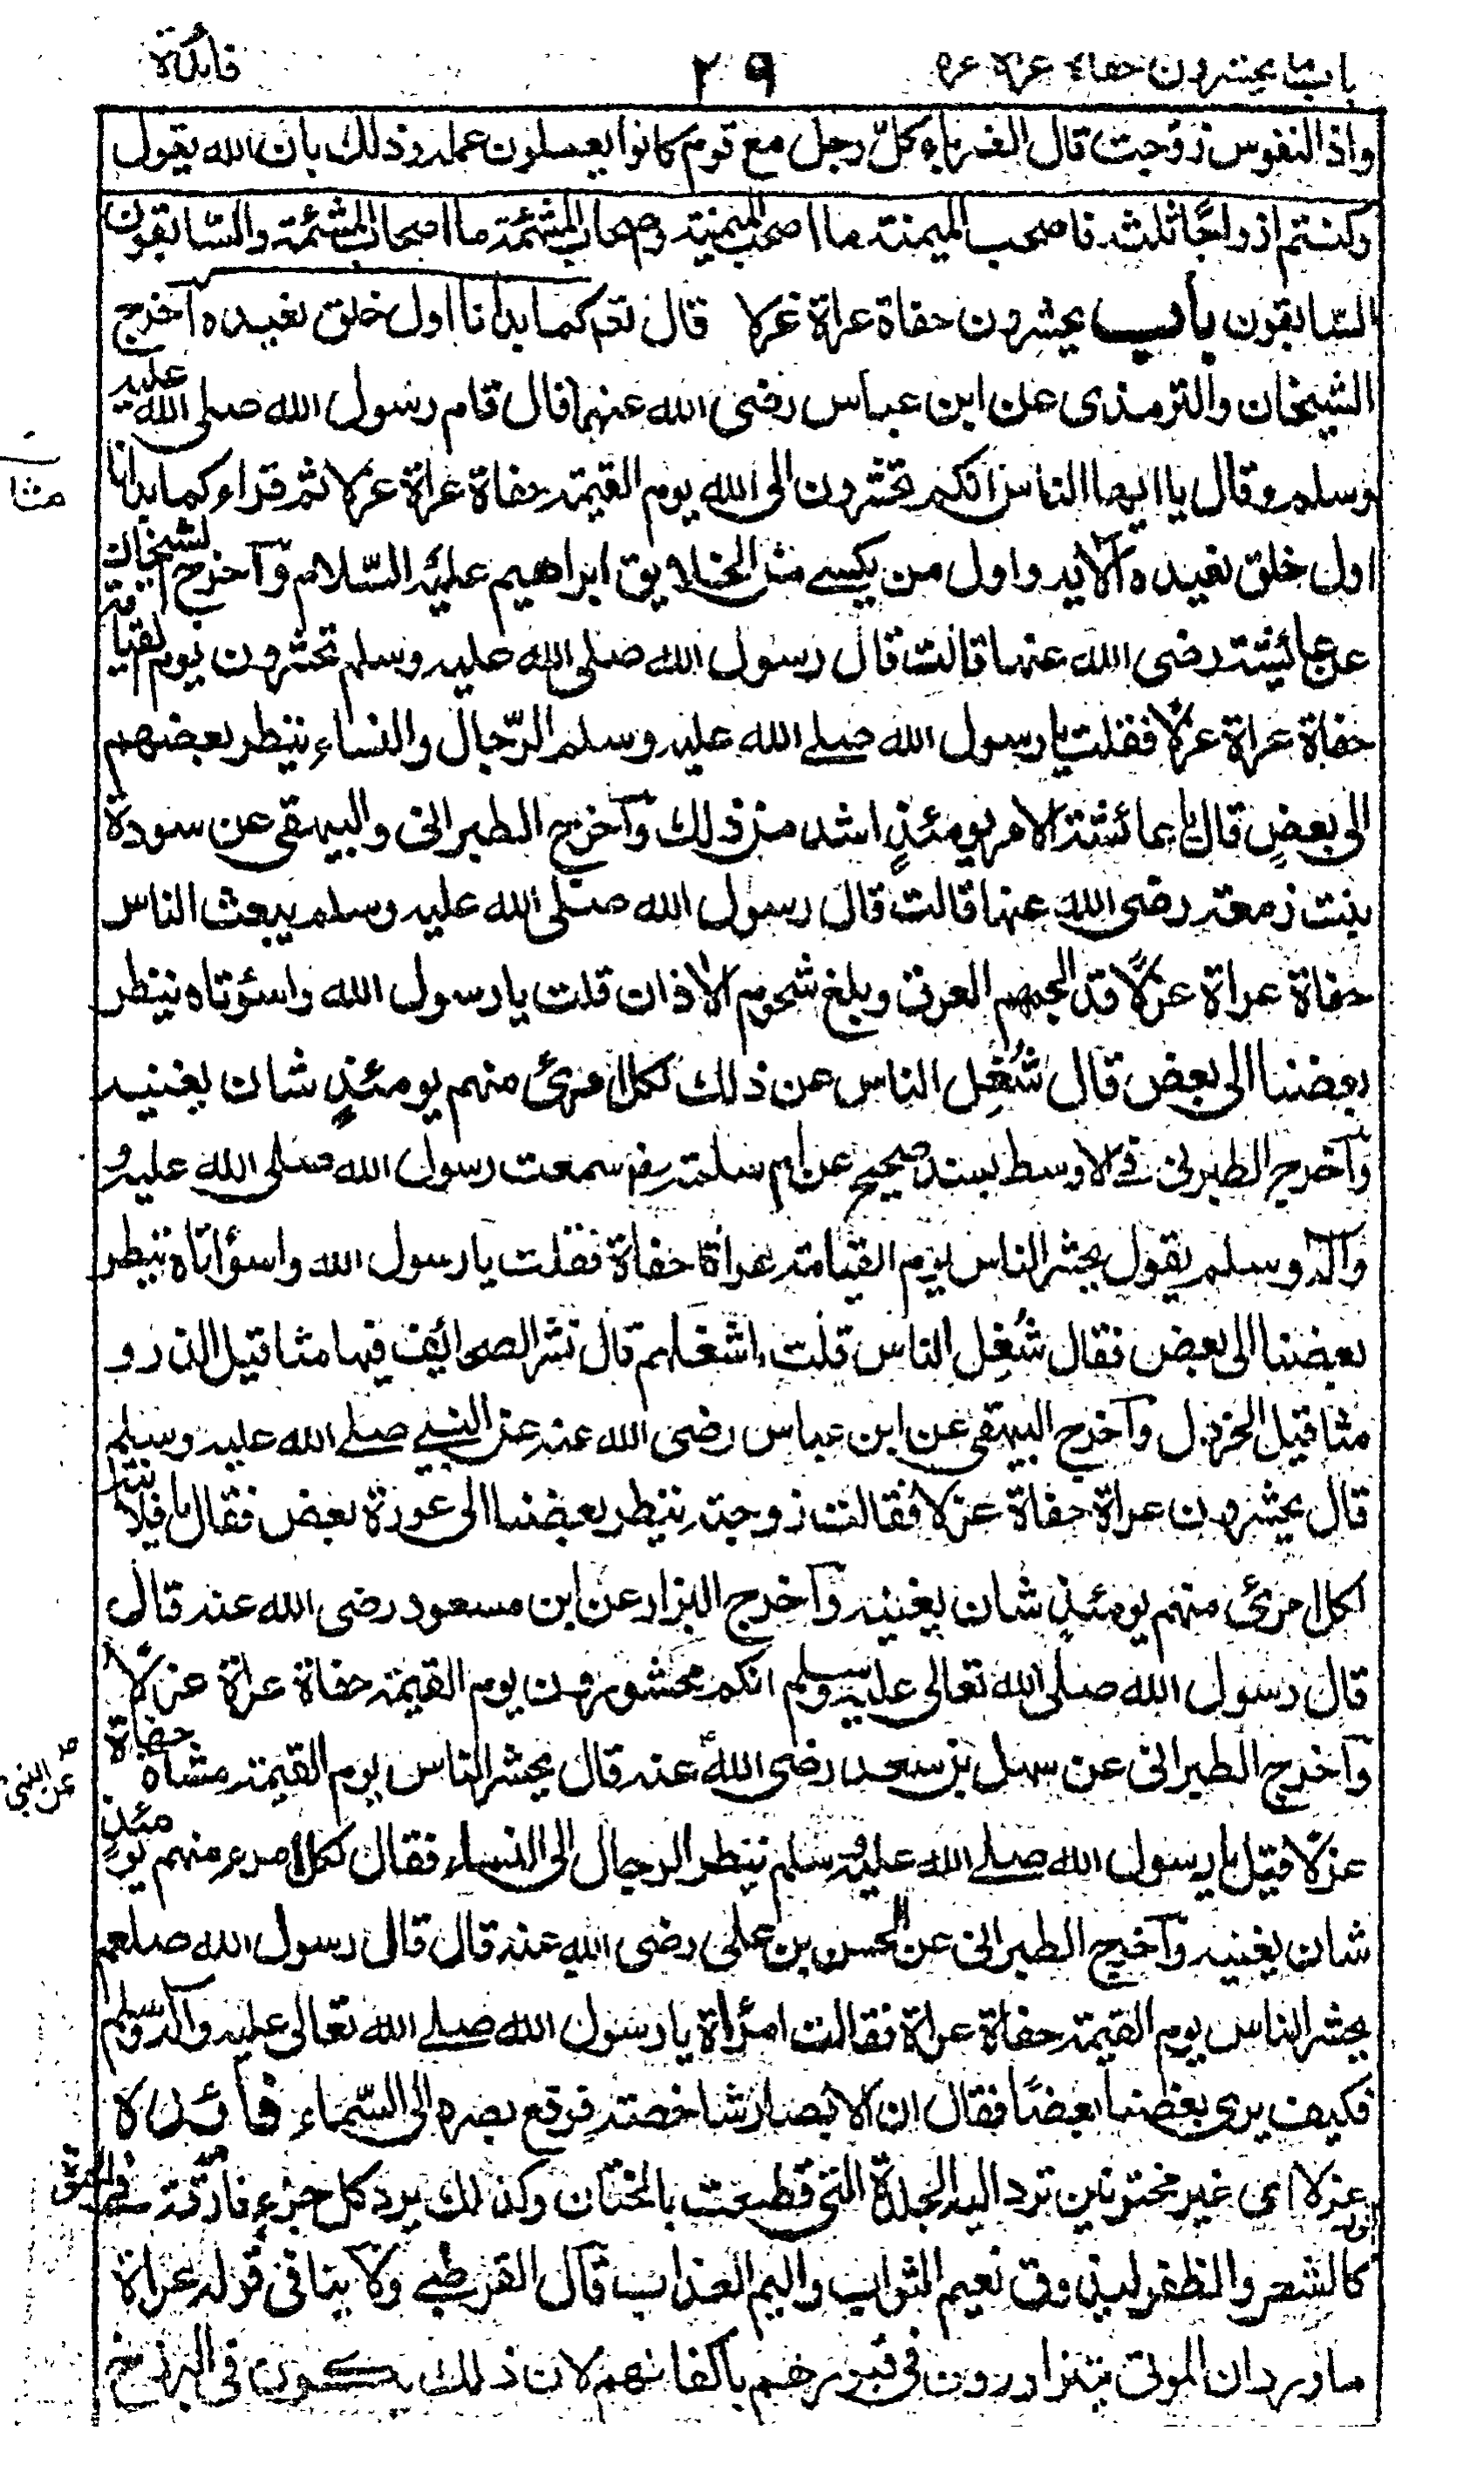 باب يحشرون حفاة عراة غرلا ٢٩ فائدة
واذا النفوس زوجت قال الغرباء كلّ رجل مع قوم كانوا يعملون عمله وذلك بان الله يقول
وكنتم ازواجًا ثلثه فاصحب الميمنة ما اصحب الميمنة واصحاب المشئمة ما اصحاب المشئمة والسّابقون
السّابقون باب يحشرون حفاة عراة غرلا قال تعـ كما بدانا اول خلق نعيده اخرج
الشيخان والترمذى عن ابن عباس رضى الله عنهما قال قام رسول الله صلى الله عليه
وسلم وقال يا ايها الناس انكم تحشرون الى الله يوم القيمة حفاة عراة غرلا ثم قراء كما بدانا
اول خلق نعيده الاية واول من يكسے من الخلايق ابراهيم عليه السّلام وآخرج الشيخان
عن عائشة رضى الله عنها قالت قال رسول الله صلى الله عليه وسلم تحشرون يوم القيامة
حفاة عراة غرلا فقلت يا رسول الله صلے الله عليه وسلم الرّجال والنساء ينظر بعضهم
الى بعضٍ قال يا عائشة الامر يومئذٍ اشد من ذلك وآخرج الطبرانى والبيهقى عن سودة
بنت زمعة رضى الله عنها قالت قال رسول الله صلى الله عليه وسلم يبعث الناس
حفاة عراة غرلًا قد الجمهم العرق وبلغ شحوم الاذان قلت يا رسول الله واسؤتاه ينظر
بعضنا الى بعض قال شُغِل الناس عن ذلك لكل امرئ منهم يومئذٍ شان يغنيه
وآخرج الطبرنى فے الاوسط بسند صحيح عن ام سلمة رضـ سمعت رسول الله صلى الله عليه و
وآله وسلم يقول يحشر الناس يوم القيامة عراة حفاة فقلت يا رسول الله واسؤاتاه ينظر
بعضنا الى بعض فقال شُغِل الناس قلت ما شغلهم قال نشر الصحائف فيها مثاقيل الذر و
مثاقيل الخردل وآخرج البيهقى عن ابن عباس رضى الله عنه عن النبے صلے الله عليه وسلم
قال يحشرون عراة حفاة غرلا فقالت زوجته ينظر بعضنا الى عورة بعض فقال يا فلانة
لكل امرئ منهم يومئذٍ شان يغنيه وآخرج البزار عن ابن مسعود رضى الله عنه قال
قال رسول الله صلى الله تعالى عليه وسلم انكم محشورون يوم القيمة حفاة عراة غرلًا
وآخرج الطبرانى عن سهل بن سعد رضى الله عنه قال يحشر الناس يوم القيمة مشاة حفاة
عن النبى
غرلًا قيل يا رسول الله صلے الله عليه وسلم ينظر الرجال الى النساء فقال لكل امرء منهم يومئذٍ
شان يغنيه وآخرج الطبرانى عن الحسن بن على رضى الله عنه قال قال رسول الله صلعم
يحشر الناس يوم القيمة حفاة عراة فقالت امرأة يا رسول الله صلے الله تعالى عليه وآله وسلم
فكيف يرى بعضنا بعضًا فقال ان الابصار شاخصة فرفع بصره الى السّماء فائدة
غرلا اى غير مختونين ترد اليه الجلدة التى قطعت بالختان وكذلك يرد كل جزءٍ فارقه فے
كالشعر والظفر ليذوق نعيم الثواب واليم العذاب قال القرطبے ولا ينافى قوله عراة
ما ورد ان الموتى يتزاورون فى قبورهم باكفانهم لان ذلك يكون فى البرزخ